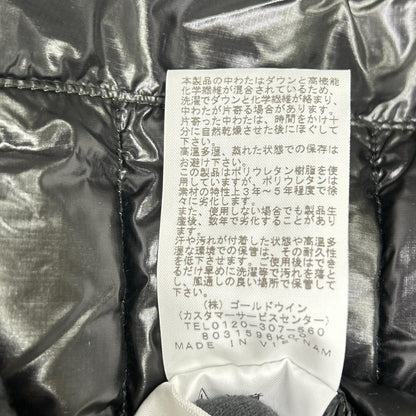 本製品の中わたはダウンと高機能
化学繊維が混合されているため、
洗濯でダウンと化学繊維が絡まり、
中わたが片寄る場合があります。
片寄った中わたは、時間をかけ十
分に自然乾燥させた後にほぐして
下さい。
高温多湿、蒸れた状態での保存は
お避け下さい。
この製品はポリウレタン樹脂を使
用していますが、ポリウレタンは
素材の特性上3年~5年程度で徐
々に劣化します。
また、使用しない場合でも製品生
産後、数年で劣化することがあり
ます。
汗や汚れが付着した状態や高温多
湿な環境での保管は、その耐久性
を低下させます。ご使用後はでき
るだけ早めに洗濯等で汚れを落と
し、風通しの良い場所で保管して
下さい。
(株)ゴールドウイン
(カスタマーサービスセンター)
TEL0120-307-560
MADE IN VIETNAM